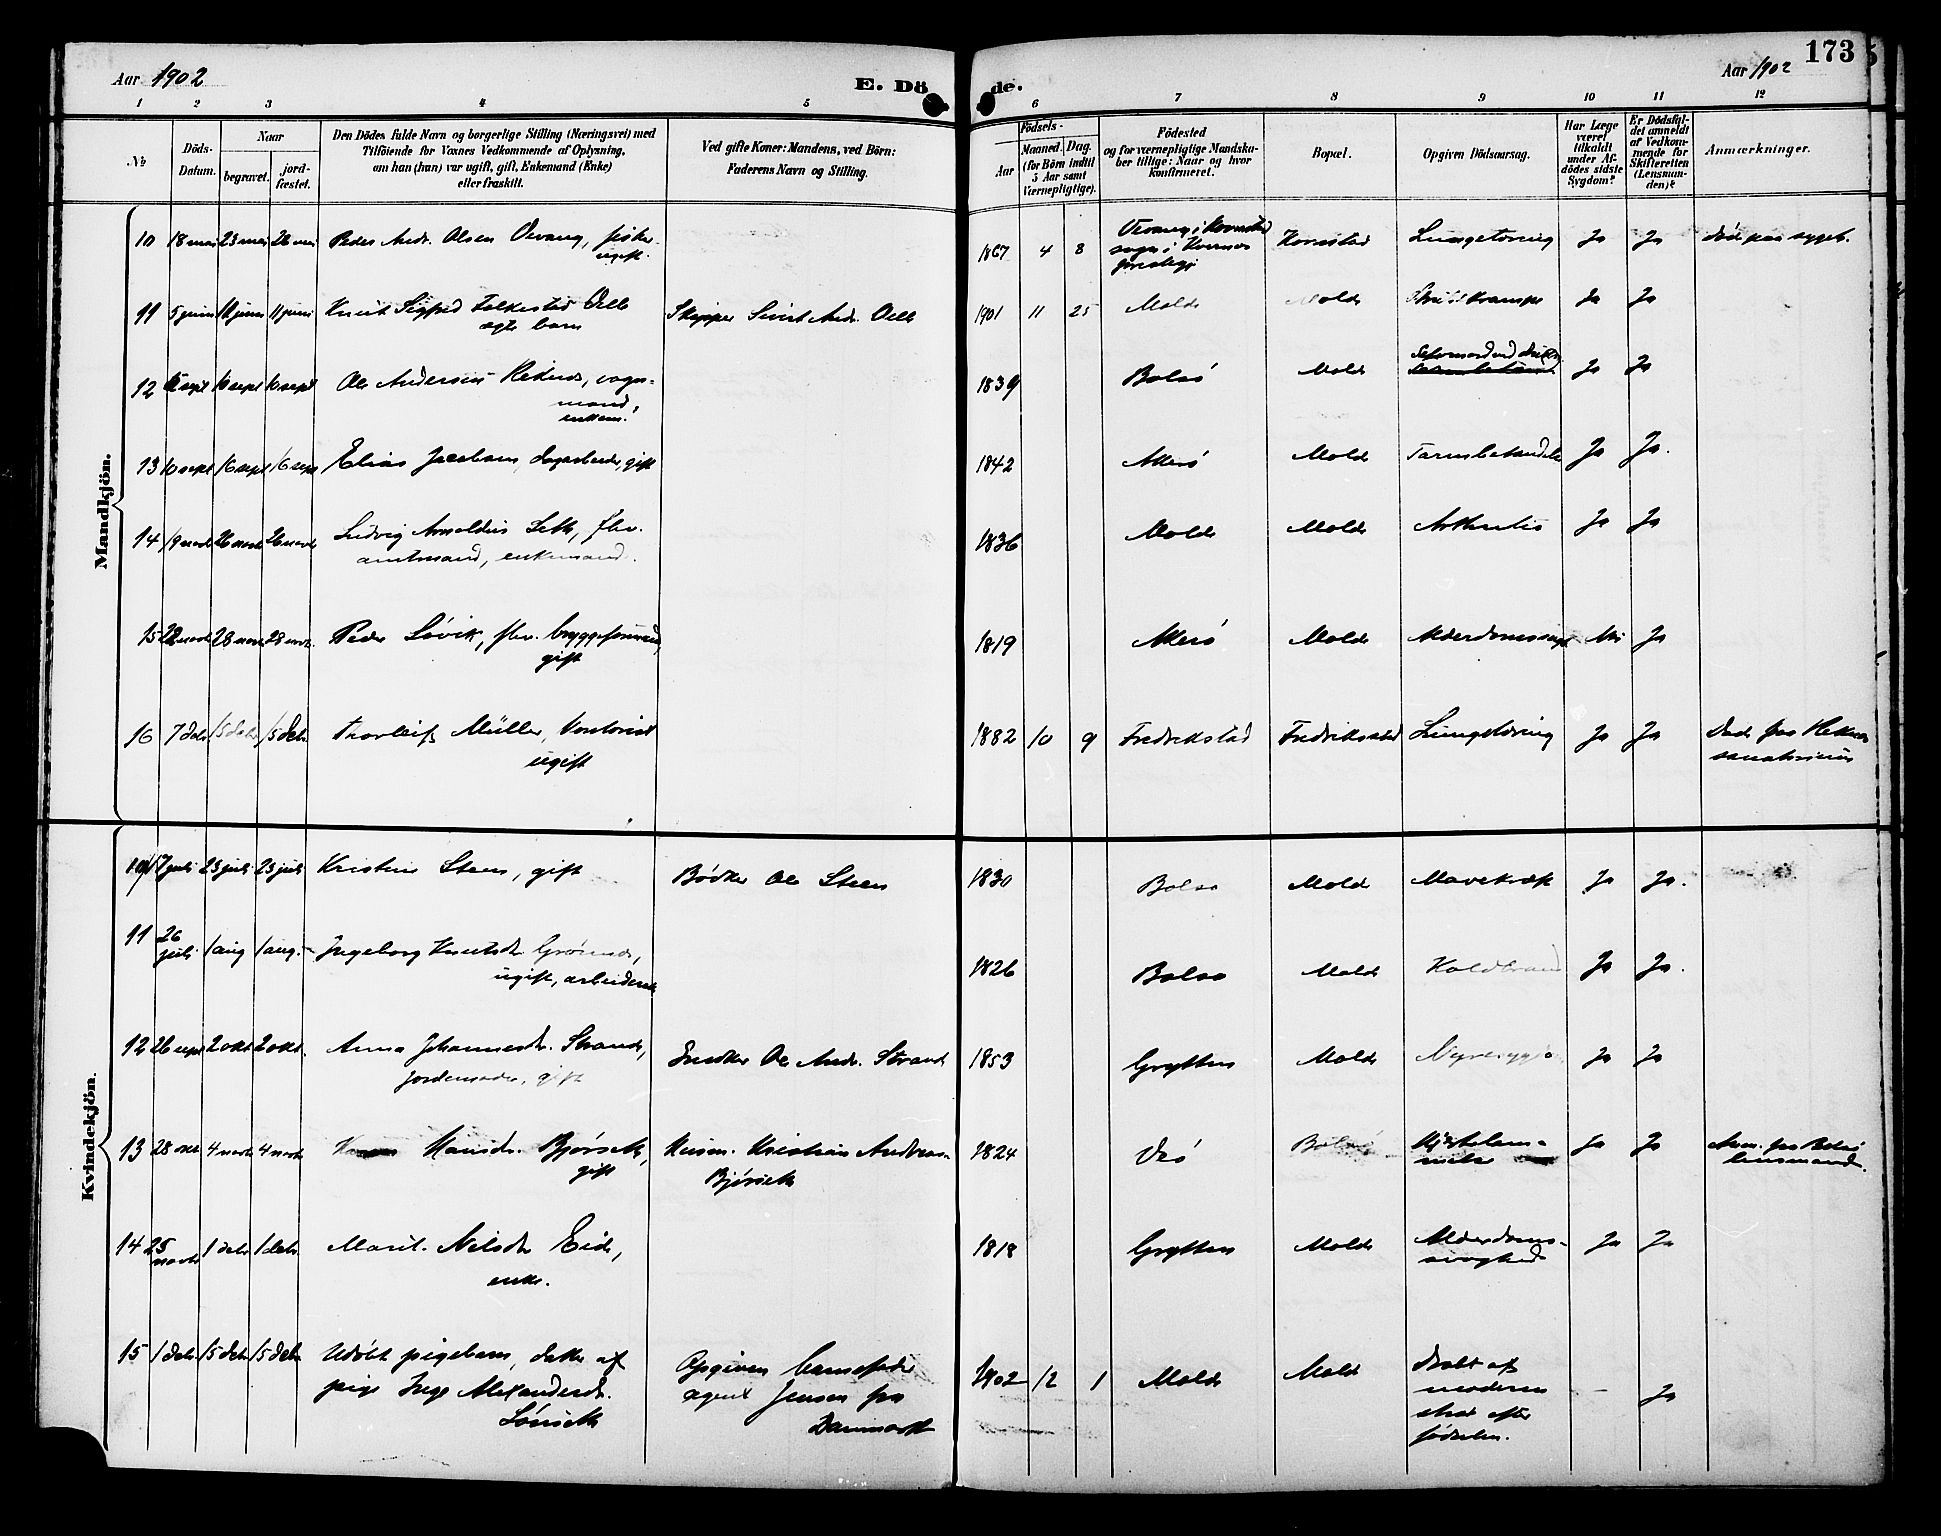 Aar 1902
E. Dö
de.
Aar 1902
173
1 2 3 4 5 6 7 8 9 10 11 12
No
Döds-
Datum.
Naar
begravet.
jord-
fæstet.
Den Dödes fulde Navn og borgerlige Stilling (Næringsvei) med
Tilföiende for Voxnes Vedkommende af Oplysning,
om han (hun) var ugift, gift, Enkemand (Enke)
eller fraskilt.
Ved gifte Koner: Mandens, ved Börn:
Faderens Navn og Stilling.
Födsels-
Aar
Maaned. Dag.
(for Börn indtil
5 Aar samt
Værnepligtige).
Födested
og for værnepligtige Mandska-
ber tillige: Naar og hvor
konfirmeret.
Bopæl.
Opgiven Dödsaarsag.
Har Læge
været
tilkaldt
under Af-
dödes sidste
Sygdom?
Er Dödsfal-
det anmeldt
af Vedkom-
mende for
Skifteretten
(Lensman-
den)?
Anmærkninger.
Mandkjön.
10 18 mai 23 mai 28 mai Peder Andr. Olsen Vevang, fisker
ugift.
1867 4 8 Vevang i Kornstad
sogn i Kvernes
prestegj Kornstad Lungetæring Ja Ja död paa sygeh.
11 5 juni 11 juni 11 juni Knut Sigfred Falkestad Oelle
ægte barn
Skipper Sivert Andr. Oelle 1901 11 25 Molde Molde Ja Ja
12 sept 10 sept 10 sept Ole Andersen Reknes, vogn-
mand,
enkem.
1839 Bolsö Molde Selvmord ved Ja Ja
13 10 sept 16 sept 16 sept Elias Jacobsen, dagarbeider, gift
1842 Akerö Molde Ja Ja.
14 19 novbr 26 novbr 26 novbr Ludvig Arnoldus Leth, fhv.
amtmand, enkemand.
1836 Molde Molde Ja Ja
15 22 novbr 28 novbr 28 novbr. Peder Lövik, fhv. bryggeformand,
gift
1819 Akerö Molde Alderdomssvagh Nei Ja
16 7 debr 15 debr 15 debr Thorleif Müller, kontorist
ugift
1882 10 9 Fredrikstad Fredrikstad Lungetæring Ja Ja Död paa Reknes
sanatorium
Kvindekjön.
10 17 juli 23 juli 23 juli Kristine Steen, gift Bödker Ole Steen 1830 Bolsö Molde Mavekræft Ja Ja.
11 26
juli 1 aug 1 aug. Ingeborg Knutsdr.
ugift, arbeiderske
1826 Bolsö Molde Koldbrand Ja Ja.
12 26 sept 2 okt 2 okt. Anna Johannesdr. Strande,
jordemoder, gift
Snedker Ole Andr. Strand 1853 Grytten Molde Ja Ja
13 28 okt 4 novbr 4 novbr Hansdr. Bjørseth,
gift
Husm. Kristian Andreas
Bjørseth
1824 Veö Bolsö Ja Ja Anm. for Bolsö
lensmand.
14 25
novbr 1 debr 1 debr Marit Nilsdr Eide,
enke.
1818 Grytten Molde Alderdoms-
svaghed Ja Ja
15 1 debr 15 debr 15 debr Udöbt pigebarn, datter af
pige Inga Alexandersdr.
Lönseth
Opgiven barnefader
agent Jensen fra
Danmark
1902 12 1 Molde Molde Dræbt af
moderen
strax efter
födselen. - Ja